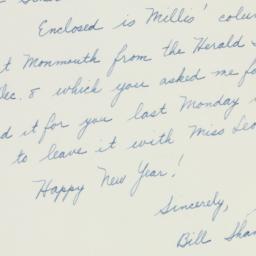 Enclosed is Millis'
t Monmouth from the Herald
Dec. 8 which you asked me fo
d it for you last Monday
to leave it with Miss
Happy New Year!
Sincerely,
Bill